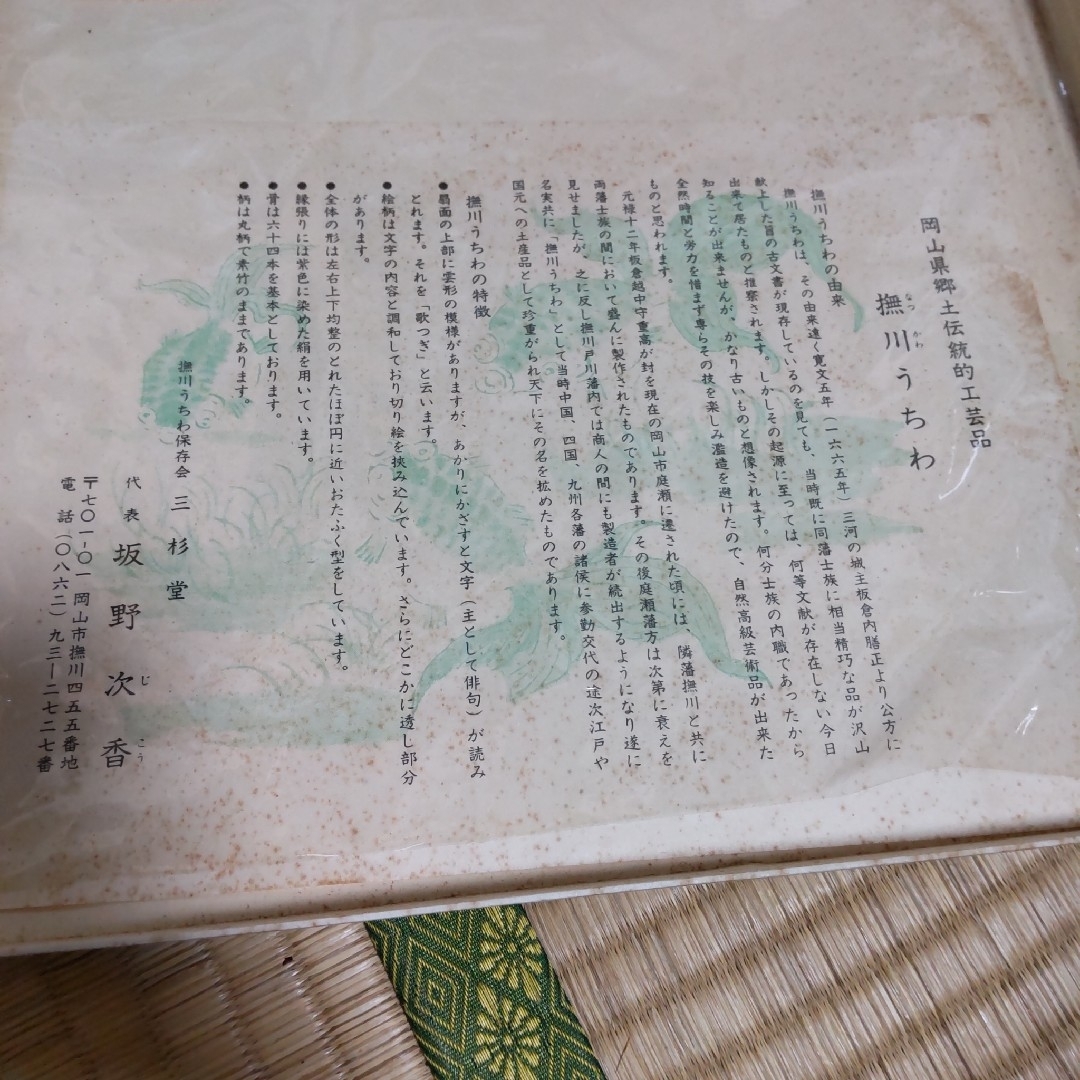 岡山県郷土伝統的工芸品
撫川うちわ
なつかわ
撫川うちわの由来
撫川うちわは、その由来遠く寛文五年（一六六五年）三河の城主板倉内膳正より公方に
献上した旨の古文書が現存しているのを見ても、当時既に同藩士族に相当精巧な品が沢山
出来て居たものと推察されます。しかしその起源に至っては、何等文献が存在しない今日
知ることが出来ませんが、かなり古いものと想像されます。何分士族の内職であったから
全然時間と労力を惜まず専らその技を楽しみ濫造を避けたので、自然高級芸術品が出来た
ものと思われます。
元禄十二年板倉越中守重高が封を現在の岡山市庭瀬に遷された頃には、隣藩撫川と共に
両藩士族の間において盛んに製作されたものであります。その後庭瀬藩方は次第に衰えを
見せましたが、之に反し撫川戸川藩内では商人の間にも製造者が続出するようになり遂に
名実共に「撫川うちわ」として当時中国、四国、九州各藩の諸侯に参勤交代の途次江戸や
国元への土産品として珍重がられ天下にその名を拡めたものであります。
撫川うちわの特徴
●扇面の上部に雲形の模様がありますが、あかりにかざすと文字（主として俳句）が読み
とれます。それを「歌つぎ」と云います。
●絵柄は文字の内容と調和しており切り絵を挟み込んでいます。さらにどこかに透し部分
があります。
●全体の形は左右上下均整のとれたほぼ円に近いおたふく型をしています。
●縁張りには紫色に染めた絹を用いています。
●骨は六十四本を基本としております。
●柄は丸柄で素竹のままであります。
撫川うちわ保存会 三杉堂
代表 坂野次香
じこう
〒七〇一-〇一 岡山市撫川四五五番地
電話（〇八六二）九三-二七二七番